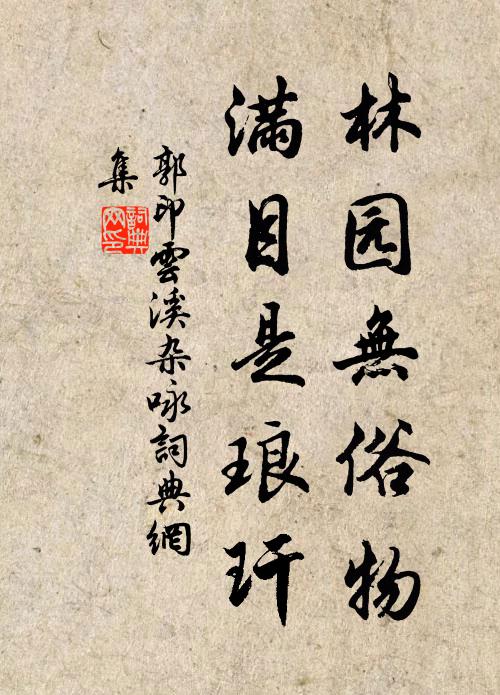 林园無俗物
滿目是琅玕
郭印雲溪杂咏詞典網
集
詞典
网印